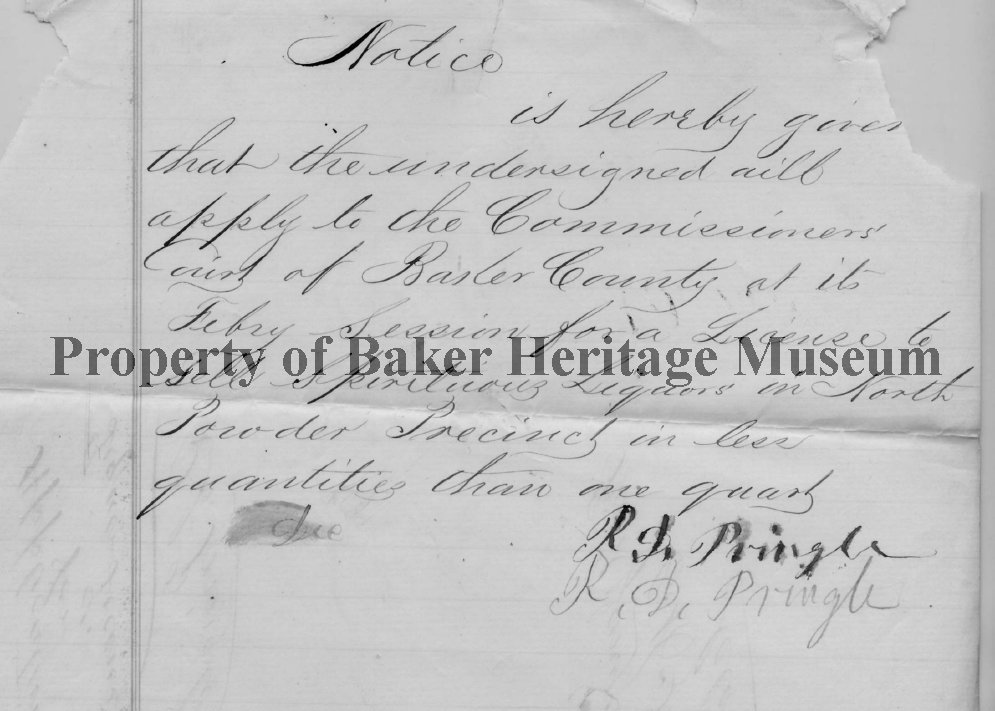 Notice
is hereby given
that the undersigned will
apply to the Commissioners
Court of Baker County at its
Febry Session for a License to
Property of Baker Heritage Museum
sell Spirituous Liquors in North
Powder Precinct in less
quantities than one quart
R. D. Pringle
R. D. Pringle